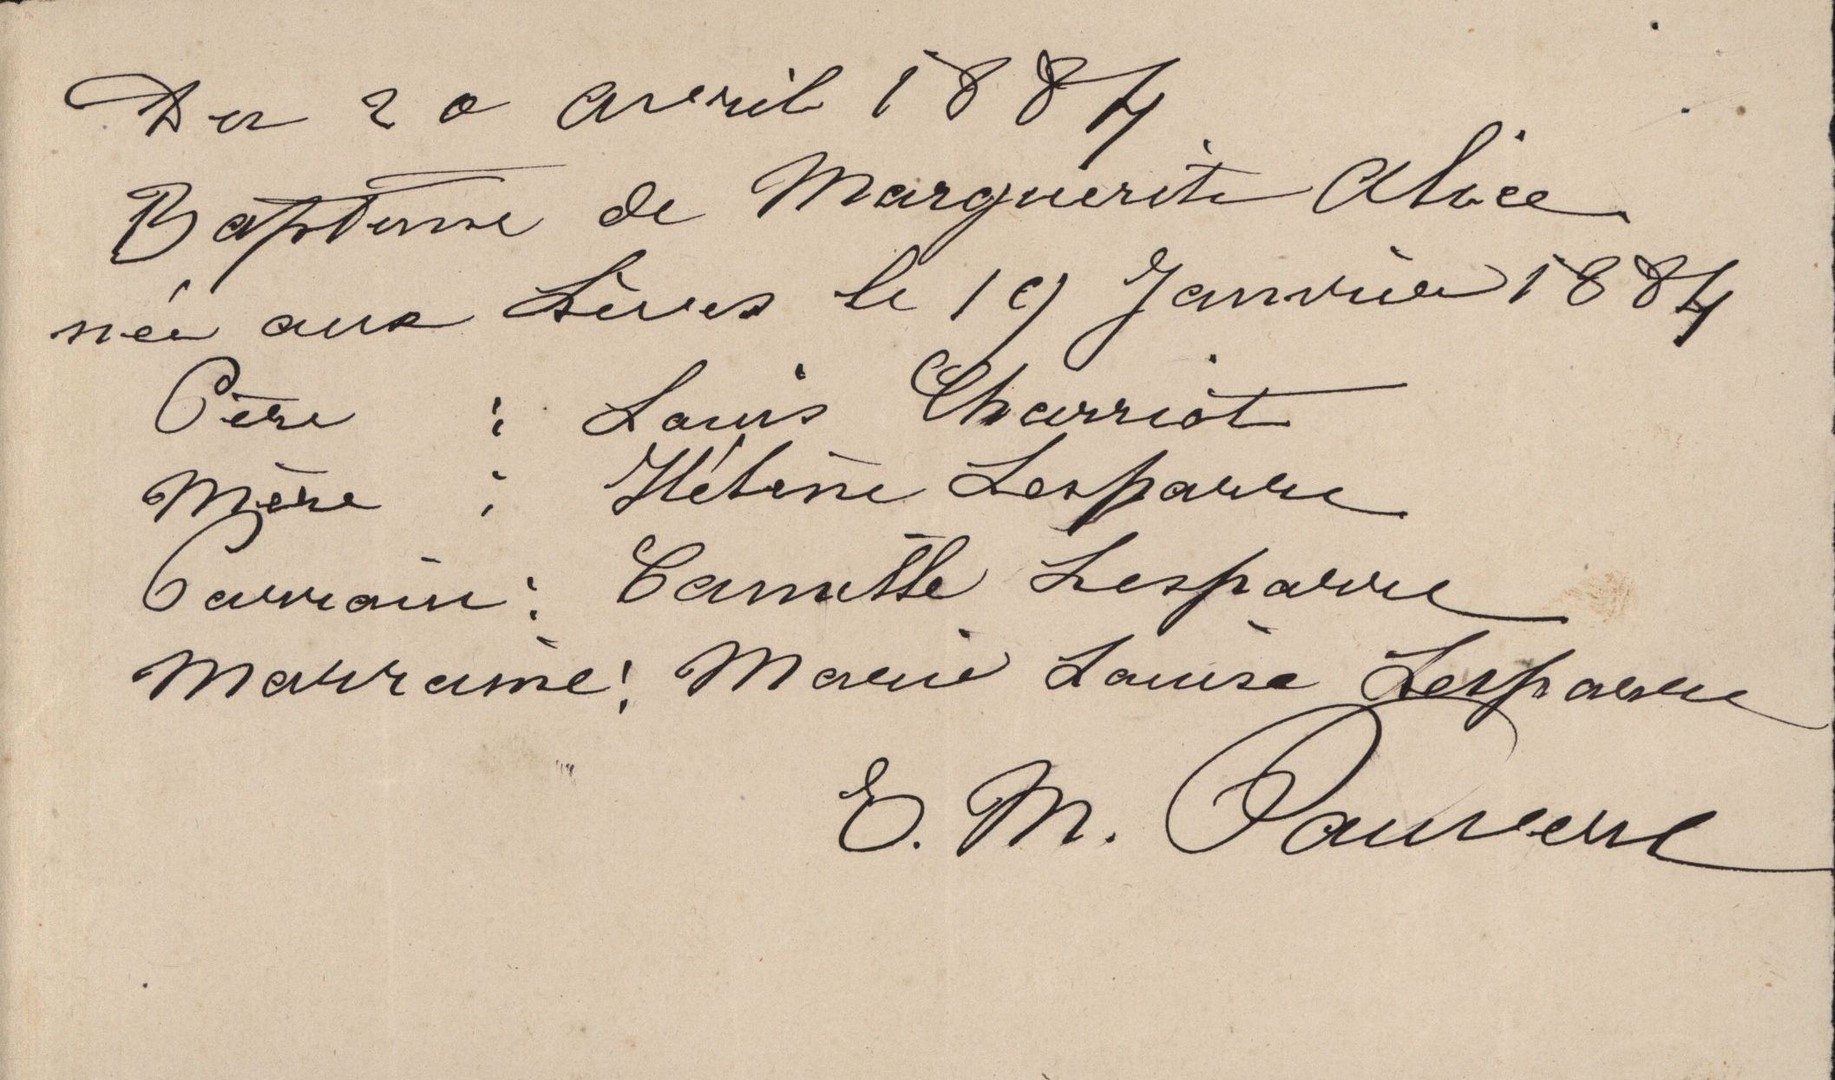 Du 20 avril 1884
Baptême de Marguerite Alice
née aux Lèves le 19 Janvier 1884
Père : Louis Charriot
Mère : Hélène Lesparre
Parrain : Camille Lesparre
Marraine : Marie Louise Lesparre
E. M.